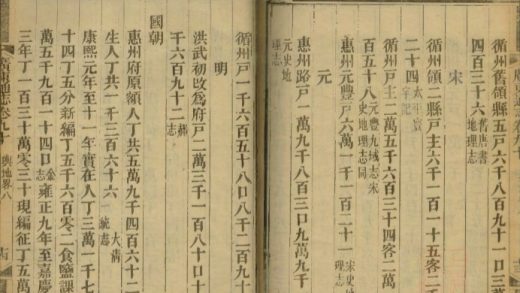 循州舊領縣五戶六千八百九十一口三萬
四百三十六舊唐書地理志
宋
循州領二縣戶主六千一百一十五客二
二十四太平寰宇記
循州戶主二萬五千六百三十四客二萬
百五十八元豐九域志宋史地理志同
惠州元豐戶六萬一千一百二十一宋史地理志
元
惠州路戶一萬九千八百三口九萬九千
元史地理志
循州戶一千六百五十八口八千二百九十
明
洪武初改爲府戶二萬三千一百八十口十
千六百九十二郝志
國朝
惠州府原額人丁共五萬九千四百六十二
生人丁共一千三百六十六大清一統志
康熙元年至十一年實在人丁三萬一千七
十四丁五分新編丁五千六百零二食鹽課
萬五千九百一十四口金志雍正九年至嘉慶
三年丁一百三十萬零三十現編征丁五萬
廣東通志卷九十 輿地畧八